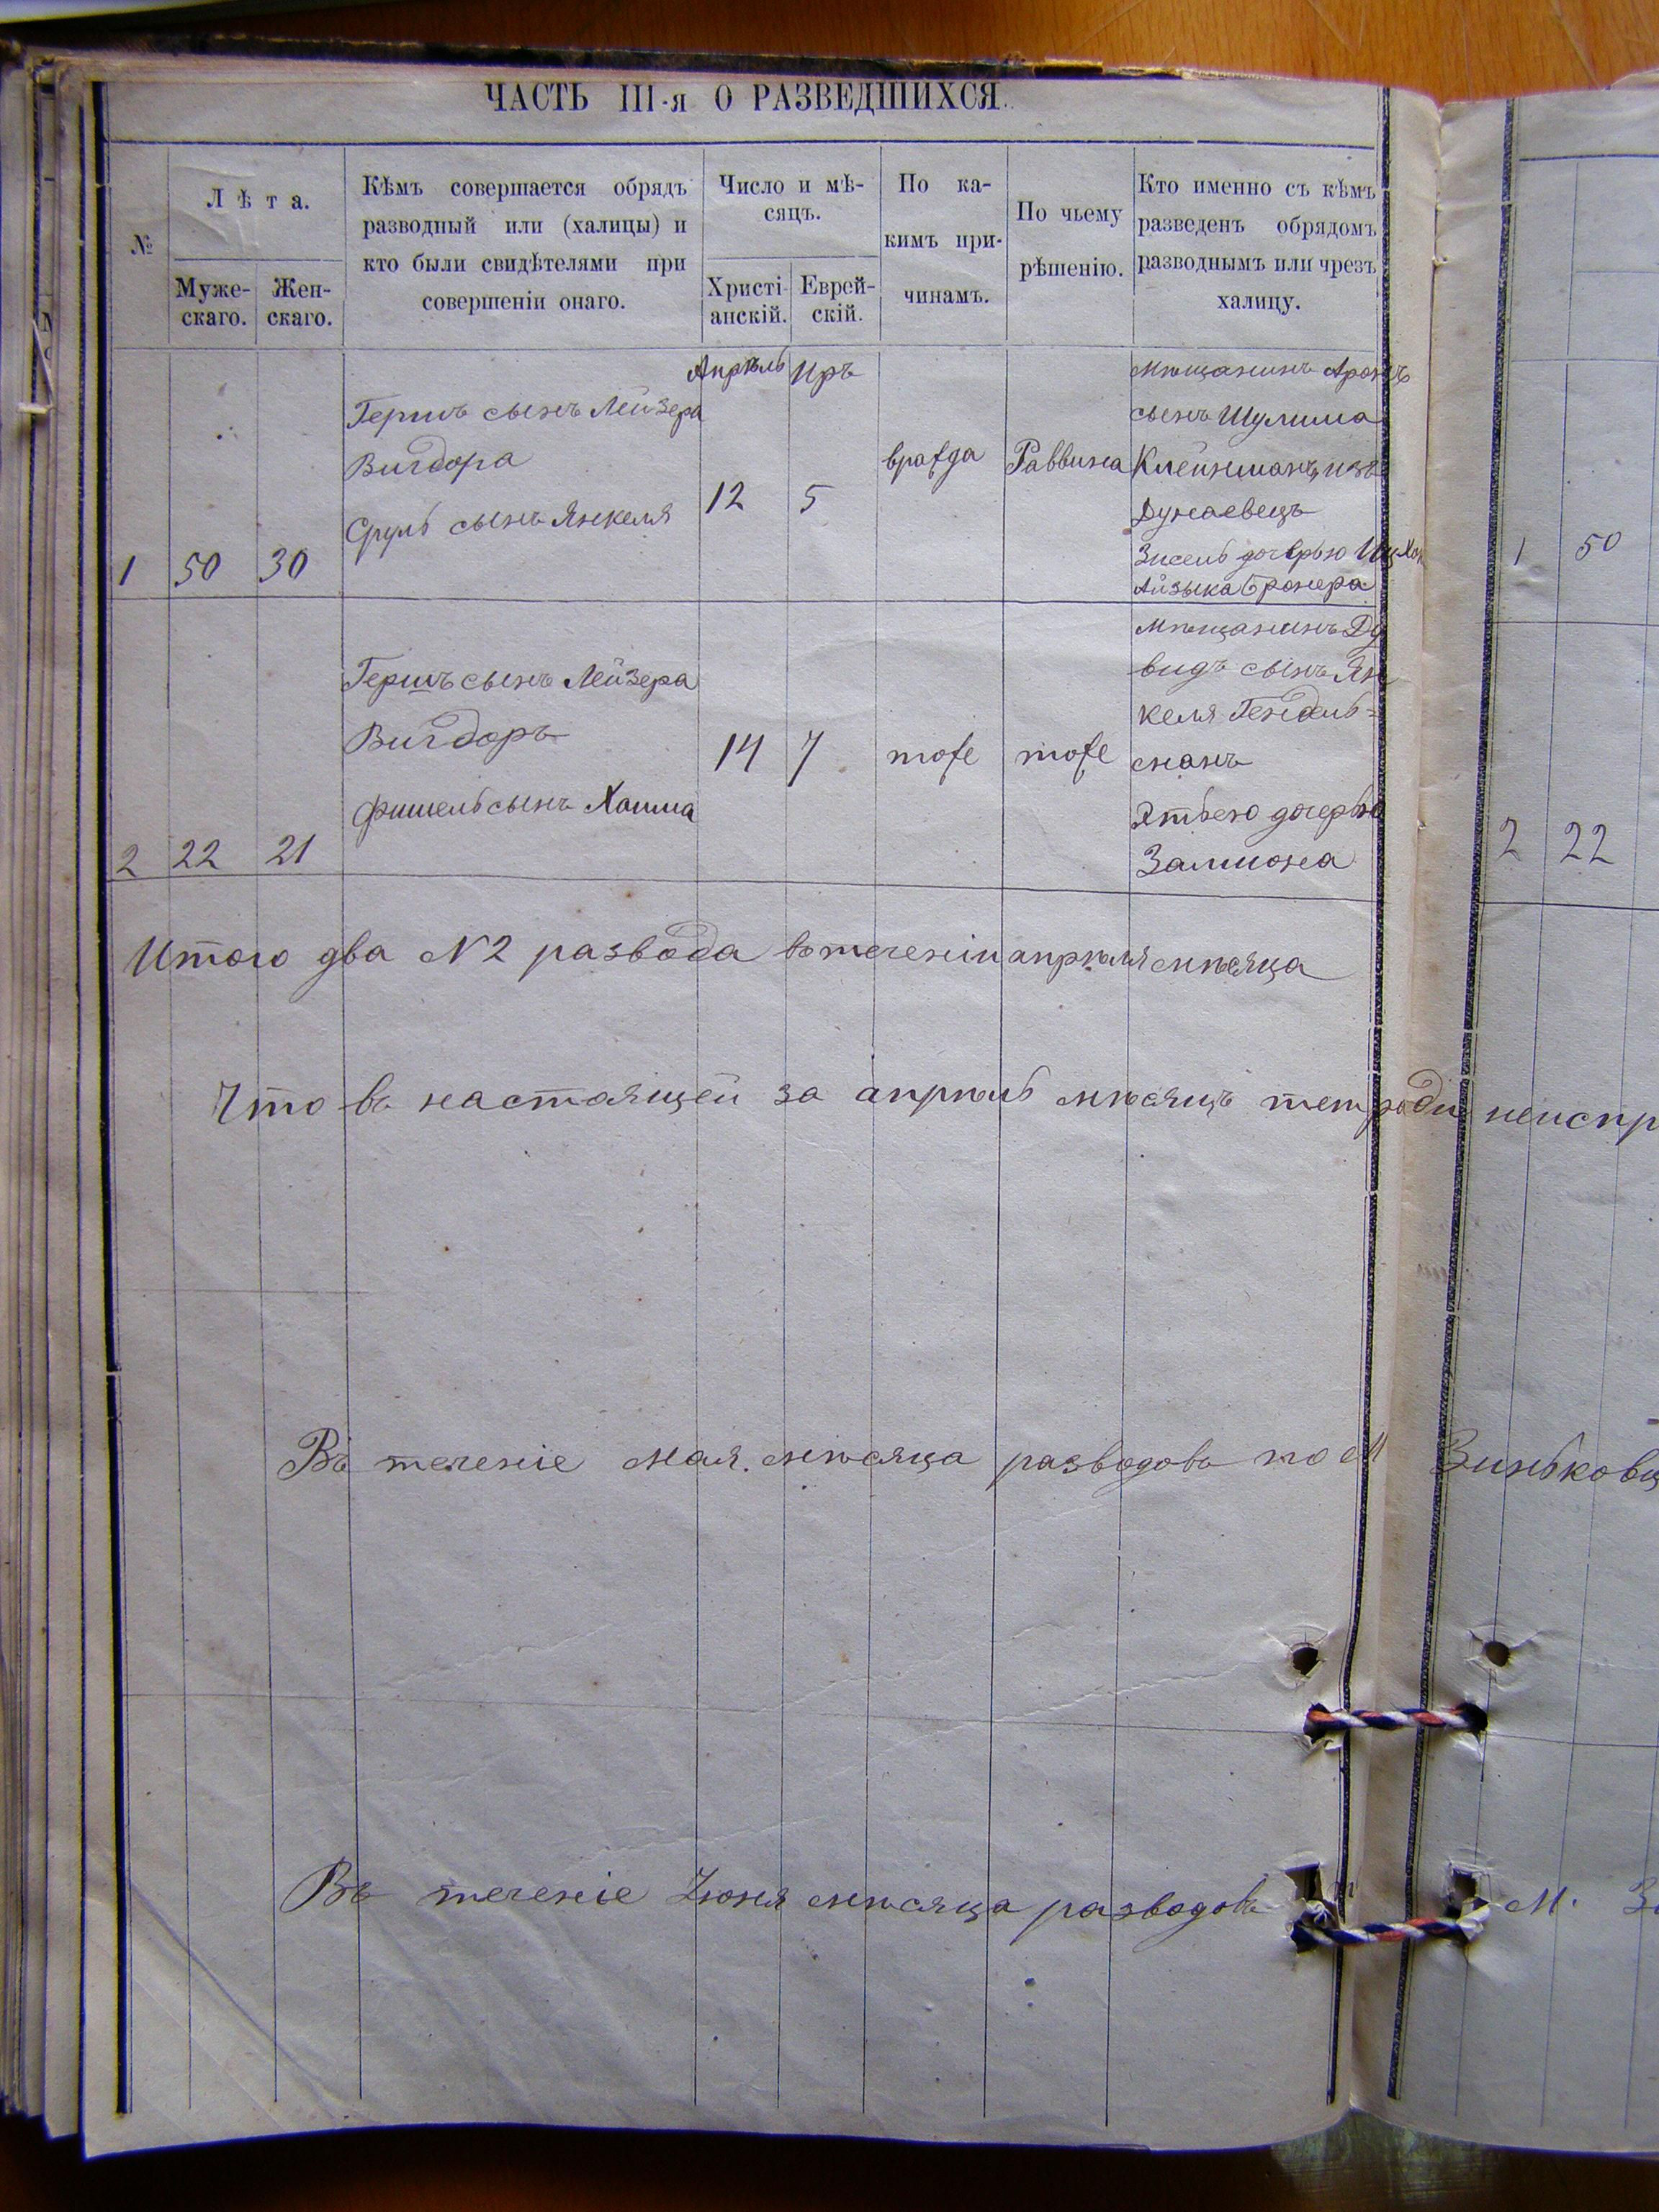 ЧАСТЬ III-я О РАЗВЕДШИХСЯ.
№
Лѣта.
Муже-
скаго.
Жен-
скаго.
Кѣмъ совершается обрядъ
разводный или (халицы) и
кто были свидѣтелями при
совершеніи онаго.
Число и мѣ-
сяцъ.
Христі-
анскій.
Еврей-
скій.
По ка-
кимъ при-
чинамъ.
По чьему
рѣшенію.
Кто именно съ кѣмъ
разведенъ обрядомъ
разводнымъ или чрезъ
халицу.
1
50
30
Гершъ сынъ Лейзера
Вигдора
Сруль сынъ Янкеля
Апрѣль
12
Иръ
5
вражда
Раввина
мѣщанинъ Аронъ
сынъ Шулима
Клейнманъ, изъ
Дунаевецъ
Зисель дочерью
Айзыка Бронера
1 50
2
22
21
Гершъ сынъ Лейзера
Вигдоръ
Фишель сынъ Хаима
14
7
тоже
тоже
мѣщанинъ Ду
видъ сынъ Ян
келя Гендель=
манъ
дочерью
Залмона
2 22
Итого два №2 развода въ теченіи апрѣля мѣсяца
Что въ настоящей за апрѣль мѣсяцъ тетради неиспр
Въ теченіе мая мѣсяца разводовъ по М Зиньковц
Въ теченіе Іюня мѣсяца разводовъ М.